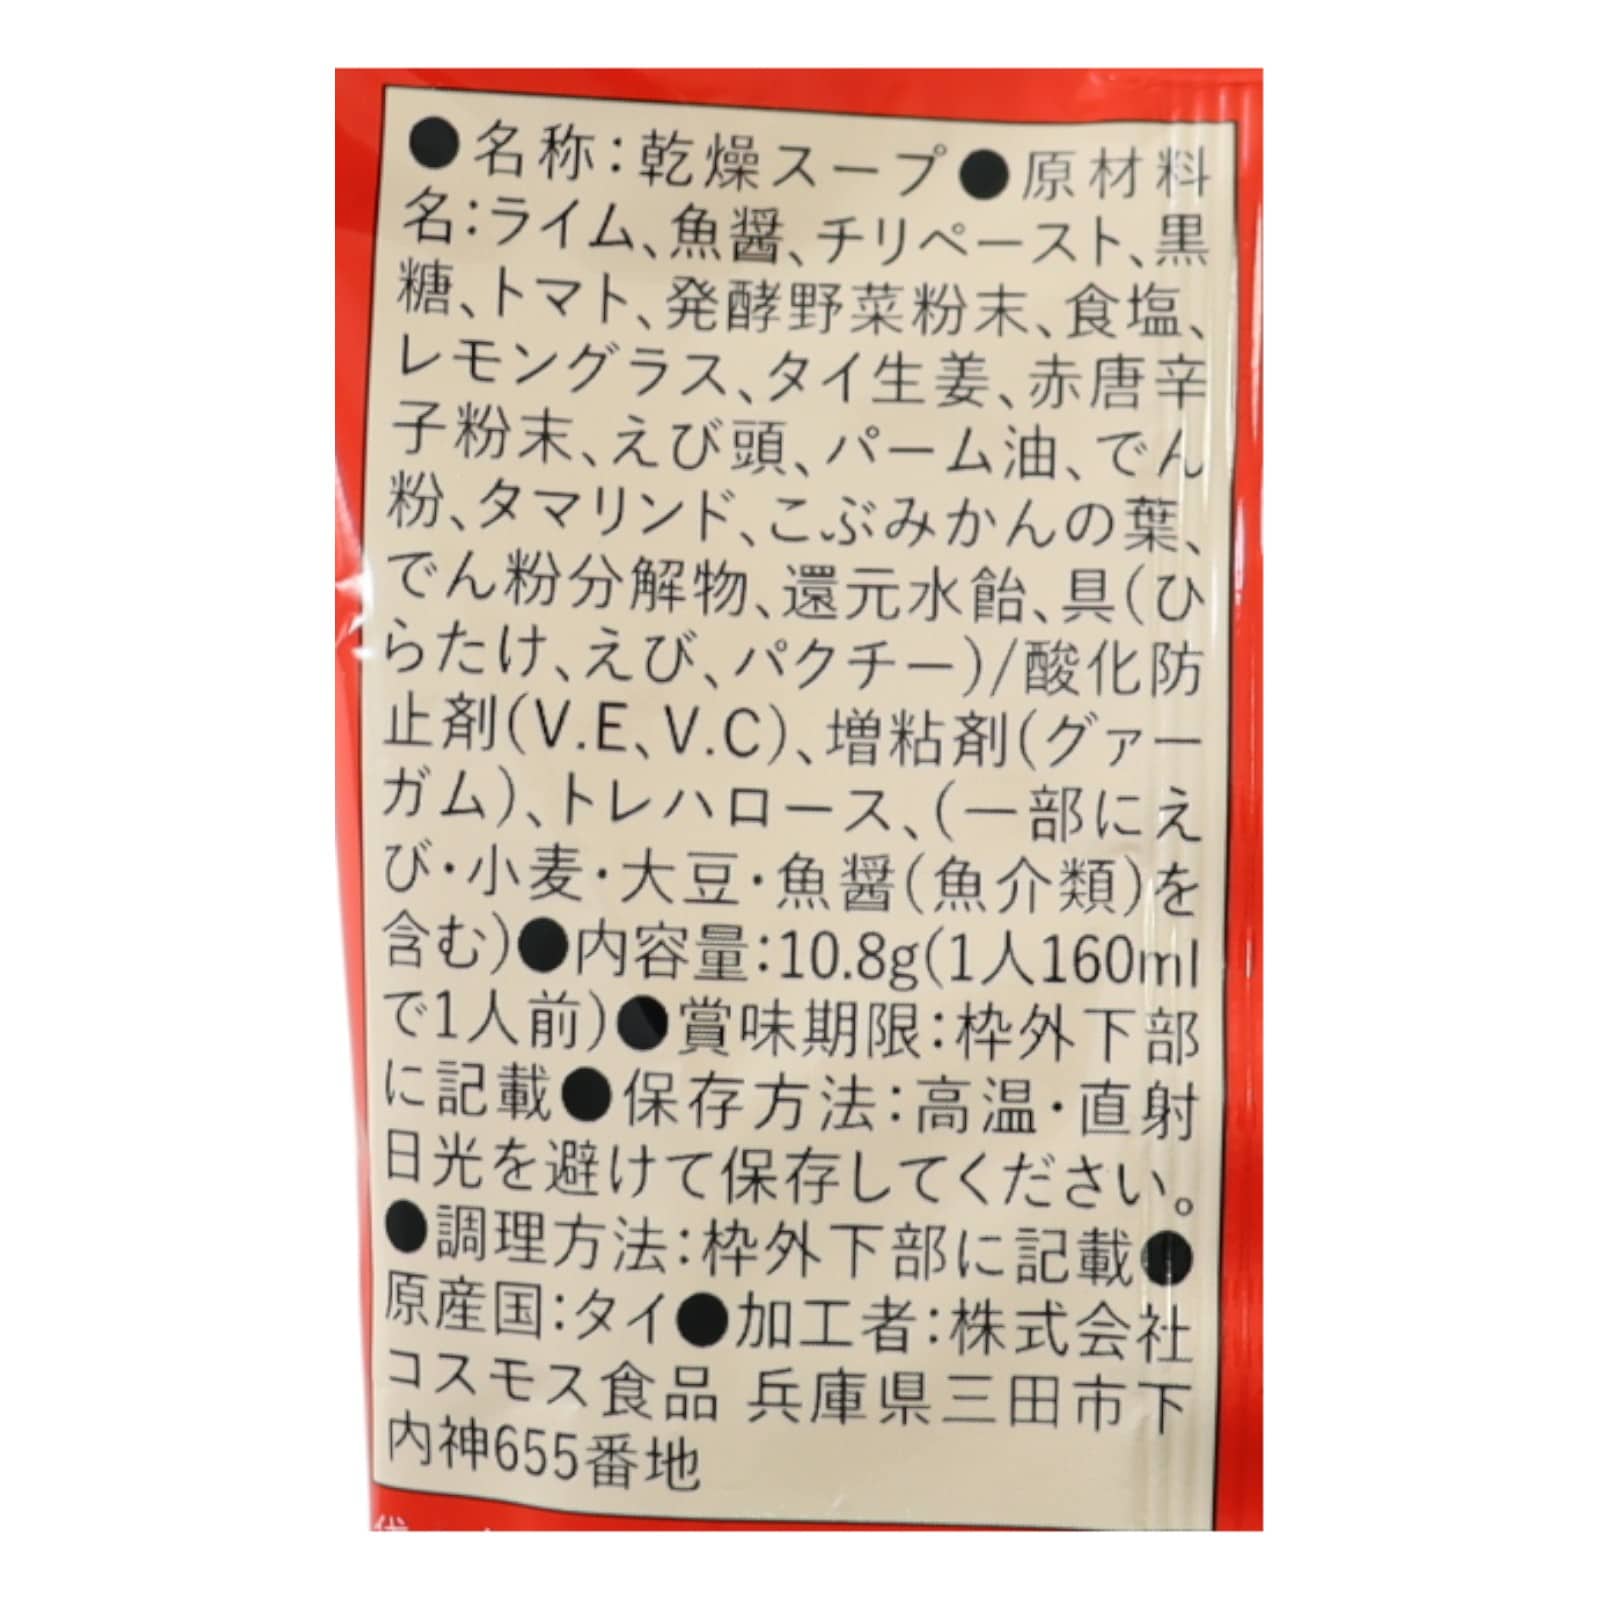 ●名称:乾燥スープ●原材料
名:ライム、魚醤、チリペースト、黒
糖、トマト、発酵野菜粉末、食塩、
レモングラス、タイ生姜、赤唐辛
子粉末、えび頭、パーム油、でん
粉、タマリンド、こぶみかんの葉、
でん粉分解物、還元水飴、具(ひ
らたけ、えび、パクチー)/酸化防
止剤(V.E、V.C)、増粘剤(グァー
ガム)、トレハロース、(一部にえ
び・小麦・大豆・魚醤(魚介類)を
含む)●内容量:10.8g(1人160ml
で1人前)●賞味期限:枠外下部
に記載●保存方法:高温・直射
日光を避けて保存してください。
●調理方法:枠外下部に記載●
原産国:タイ●加工者:株式会社
コスモス食品 兵庫県三田市下
内神655番地